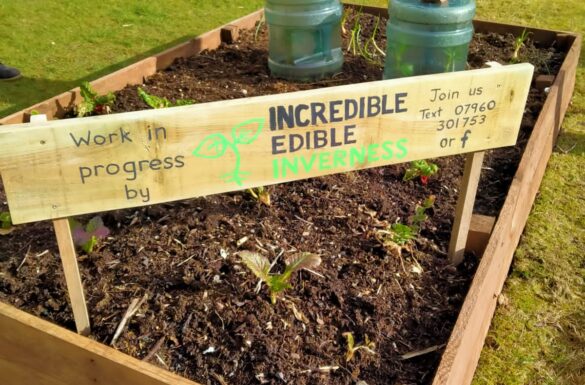 Work in
progress
by
INCREDIBLE
EDIBLE
INVERNESS
Join us
Text 07960
301753
or f